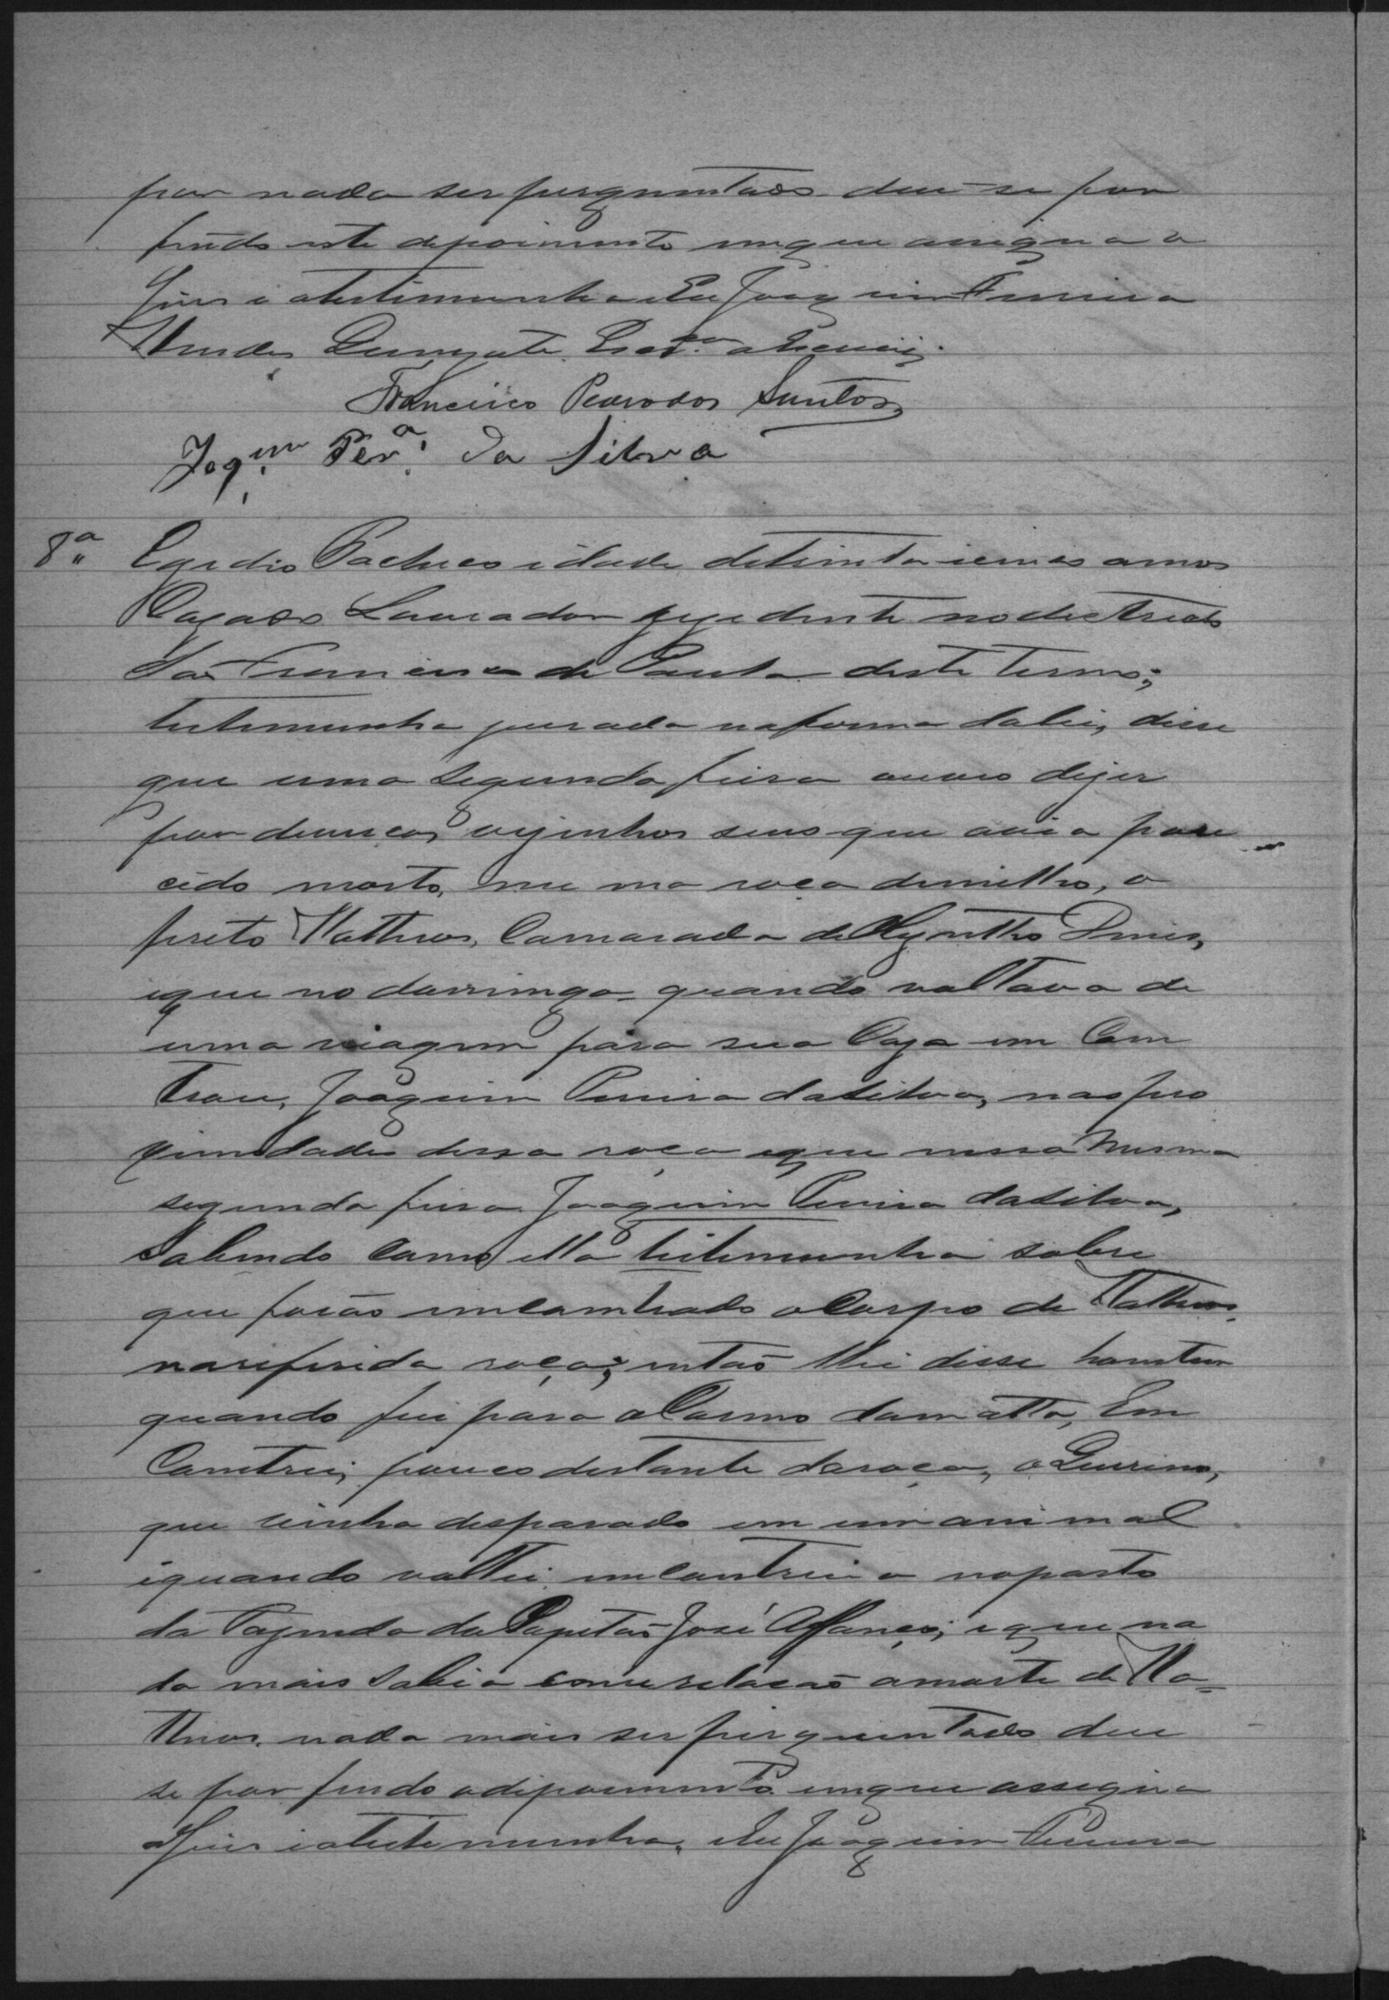 por nada ser perguntado deu-se por
findo este depoimento em que assigna o
Juis e a testimunha. Eu Joaquim Ferreira
Mendes Escr.am o escrevi.
Francisco Pedro dos Santos
Joq.im Per.a da Silva
8.a Egidio Pacheco idade de trinta e seis annos
Cazado Lavrador rezedente no destricto
São Francisco de Paula deste termo;
testemunha jurada na forma da lei, disse
que uma segunda feira ouvio dizer
por diversos vezinhos seus que avia pare
cido morto, em uma roça de milho, o
preto Matheos, Camarada de Hygntho Diniz,
e que no domingo quando voltava de
uma viagem para sua Caza em Com
trou, Joaquim Pereira da Silva, nas pro
ximidades dessa roça e que nessa mesma
segunda feira Joaquim Pereira da Silva,
sabendo como ella testemunha sobre
que forão emcomtrado o Corpo de Matheos
na referida roça; então lhe disse homtem
quando fui para o Carmo da matta, Em
Comtrei, pouco destante da roça, o Quirino,
que vinha desparado em um animal
e quando voltei emcontrei o no pasto
da Fazenda do Capitão José Affonço; e que na
da mais sabia com relacão a morte de Ma-
theos. nada mais ser perguntado deu
se por findo o depoimento em que assigna
o Juis e a testemunha. Eu Joaquim Ferreira